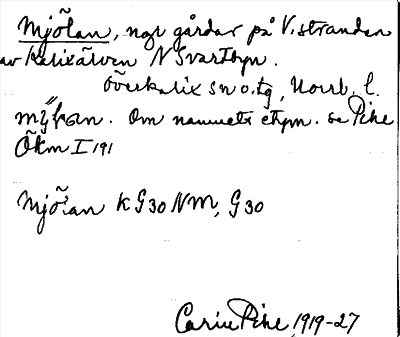 Mjölan, ngr gårdar på V. stranden
av Kalixälven N Svartbyn.
Överkalix sn o. tg, Norrb. l.
Om namnets etym. se Pihl
Ökm I 191
Mjölan K G30 NM, G30
Carin Pihl, 1919-27